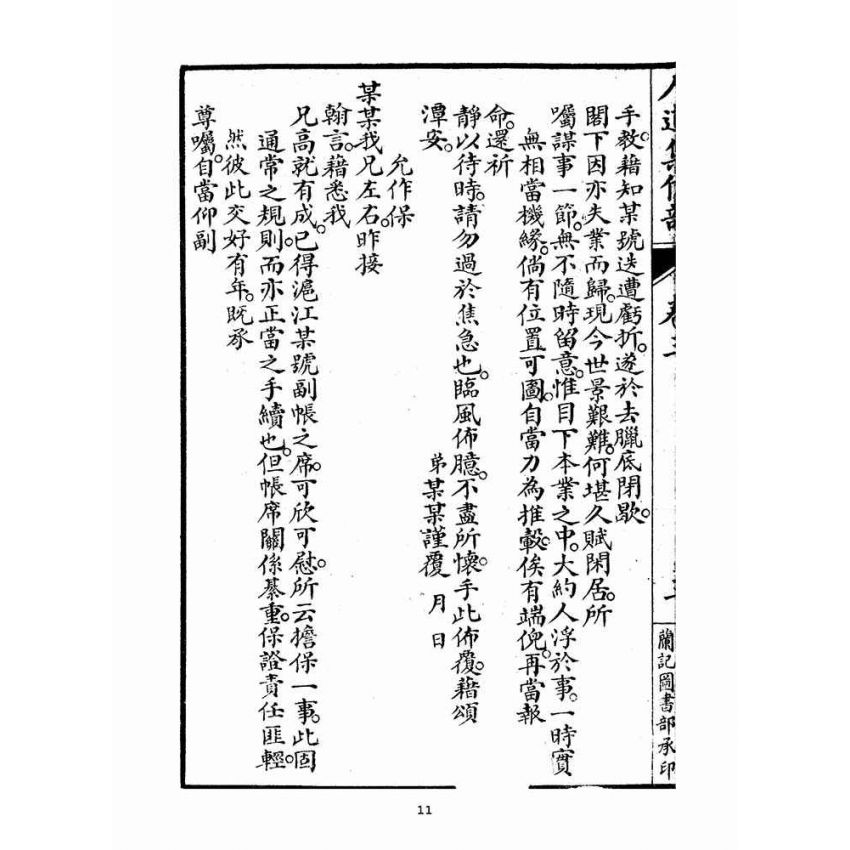 蘭記圖書部承印
手教。藉知某號迭遭虧折。遂於去臘底閉歇。
閣下因亦失業而歸。現今世景艱難。何堪久賦閑居。所
囑謀事一節。無不隨時留意。惟目下本業之中。大約人浮於事。一時實
無相當機緣。倘有位置可圖。自當力為推轂。俟有端倪。再當報
命。還祈
靜以待時。請勿過於焦急也。臨風佈臆。不盡所懷。手此佈覆。藉頌
潭安。 弟某某謹覆 月 日
允作保
某某我兄左右。昨接
翰言。藉悉我
兄高就有成。已得滬江某號副帳之席。可欣可慰。所云擔保一事。此固
通常之規則。而亦正當之手續也。但帳席關係綦重。保證責任匪輕。
然彼此交好有年。既承
尊囑。自當仰副
11